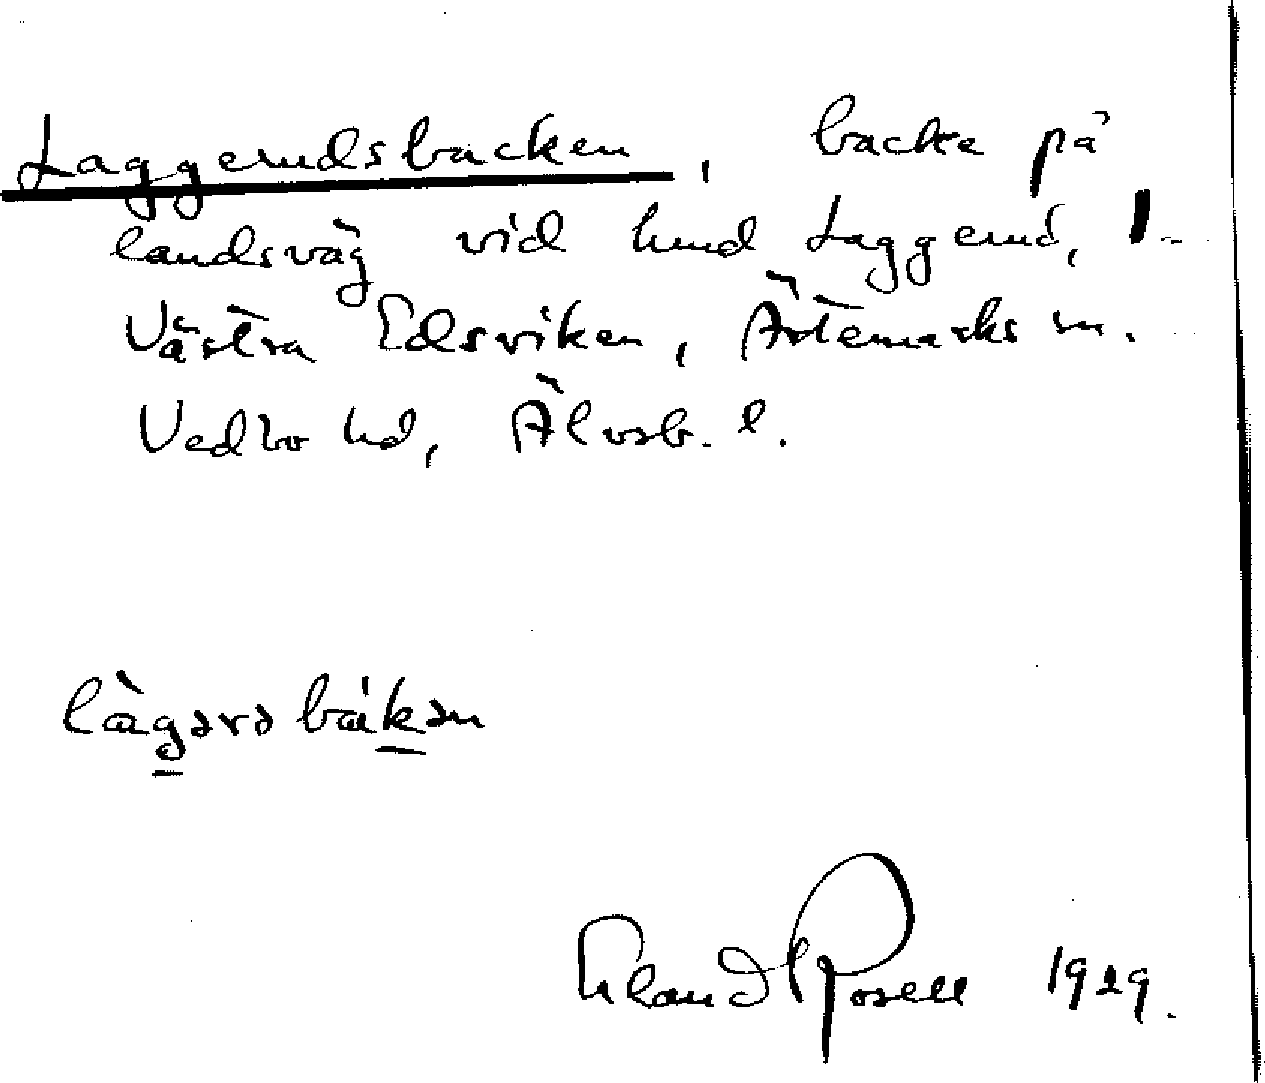 Laggerudsbacken, backe på
landsväg vid hmd Laggerud, 1
Västra Edsviken, Ärtemarks sn.
Vedbo hd, Älvsb. l.
làgərsbàkən
Erland Rosell 1929.